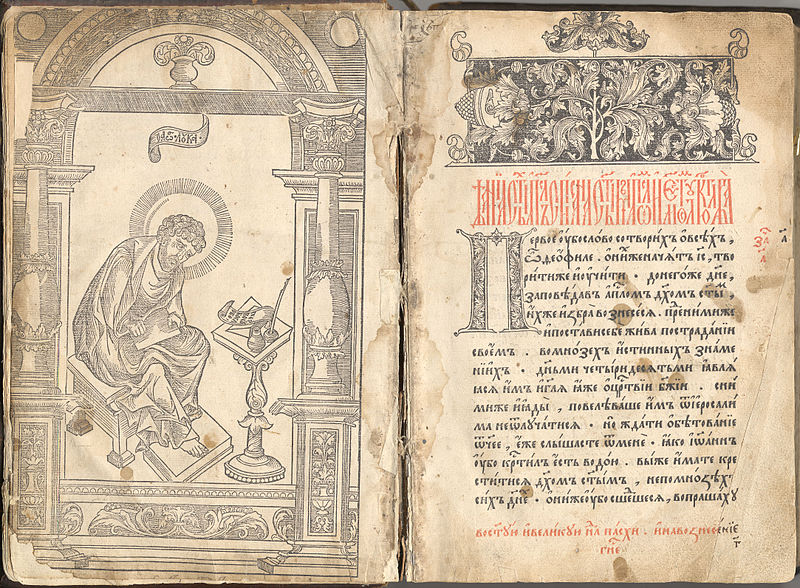 ст҃ы лꙋка
Первое оубо слово сотворихъ ѻвсѣхъ ,
ѽ ѳеѻфиле . ѻнихже начатъ іс҃ , тво
ритиже иоучити . донегоже дн҃е ,
заповѣдавъ ап҃лѻмъ дх҃омъ ст҃ы ,
ихже избра вознесеся . предними же
ипостависебе жива пострадании
своемъ . вомнозехъ истинныхъ знаме
нїихъ . дн҃ьми четыридесятьми ꙗвлѧꙗ
ꙗсѧ имъ игл҃ѧ ꙗже ѻцр҃твїи бж҃їи . сни
миже иꙗды , повелѣваше имъ ѿіеросали
ма неѿлꙋчатисѧ . но ждати ѻбѣтованїе
ѿчее , еже слышасте ѿмене . ꙗко іѡаннъ
оубо кр҃тилъ єсть водою . выже имате кре
ститисѧ дх҃омъ ст҃ымъ , непомнозѣхъ
сихъ дн҃е . ѻниже оубо сшедшесѧ , вопрашахꙋ
востꙋю ивеликꙋю нл҃ пасхи . инавознесенїе
гн҃е